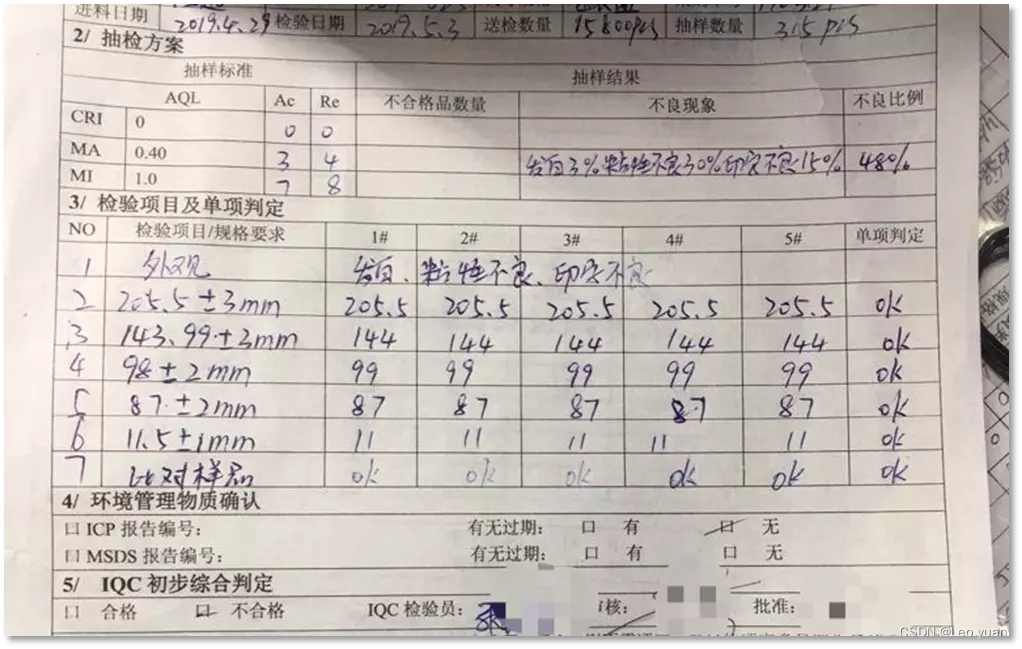 进料日期 2019.4.29 检验日期 2019.5.3 送检数量 15800pcs 抽样数量 315pcs
2/ 抽检方案
抽样标准 抽样结果
AQL Ac Re 不合格品数量 不良现象 不良比例
CRI 0 0 0
MA 0.40 3 4 发白3% 粘性不良30% 印字不良15% 48%
MI 1.0 7 8
3/ 检验项目及单项判定
NO 检验项目/规格要求 1# 2# 3# 4# 5# 单项判定
1 外观 发白、粘性不良、印字不良
2 205.5±3mm 205.5 205.5 205.5 205.5 205.5 ok
3 143.99±3mm 144 144 144 144 144 ok
4 98±2mm 99 99 99 99 99 ok
5 87±2mm 87 87 87 87 87 ok
6 11.5±1mm 11 11 11 11 11 ok
7 比对样品 ok ok ok ok ok ok
4/ 环境管理物质确认
口 ICP 报告编号： 有无过期： 口 有 口 无
口 MSDS 报告编号： 有无过期： 口 有 口 无
5/ IQC 初步综合判定
口 合格 口 不合格 IQC 检验员： 核： 批准：
CSDN @Leo.yuan